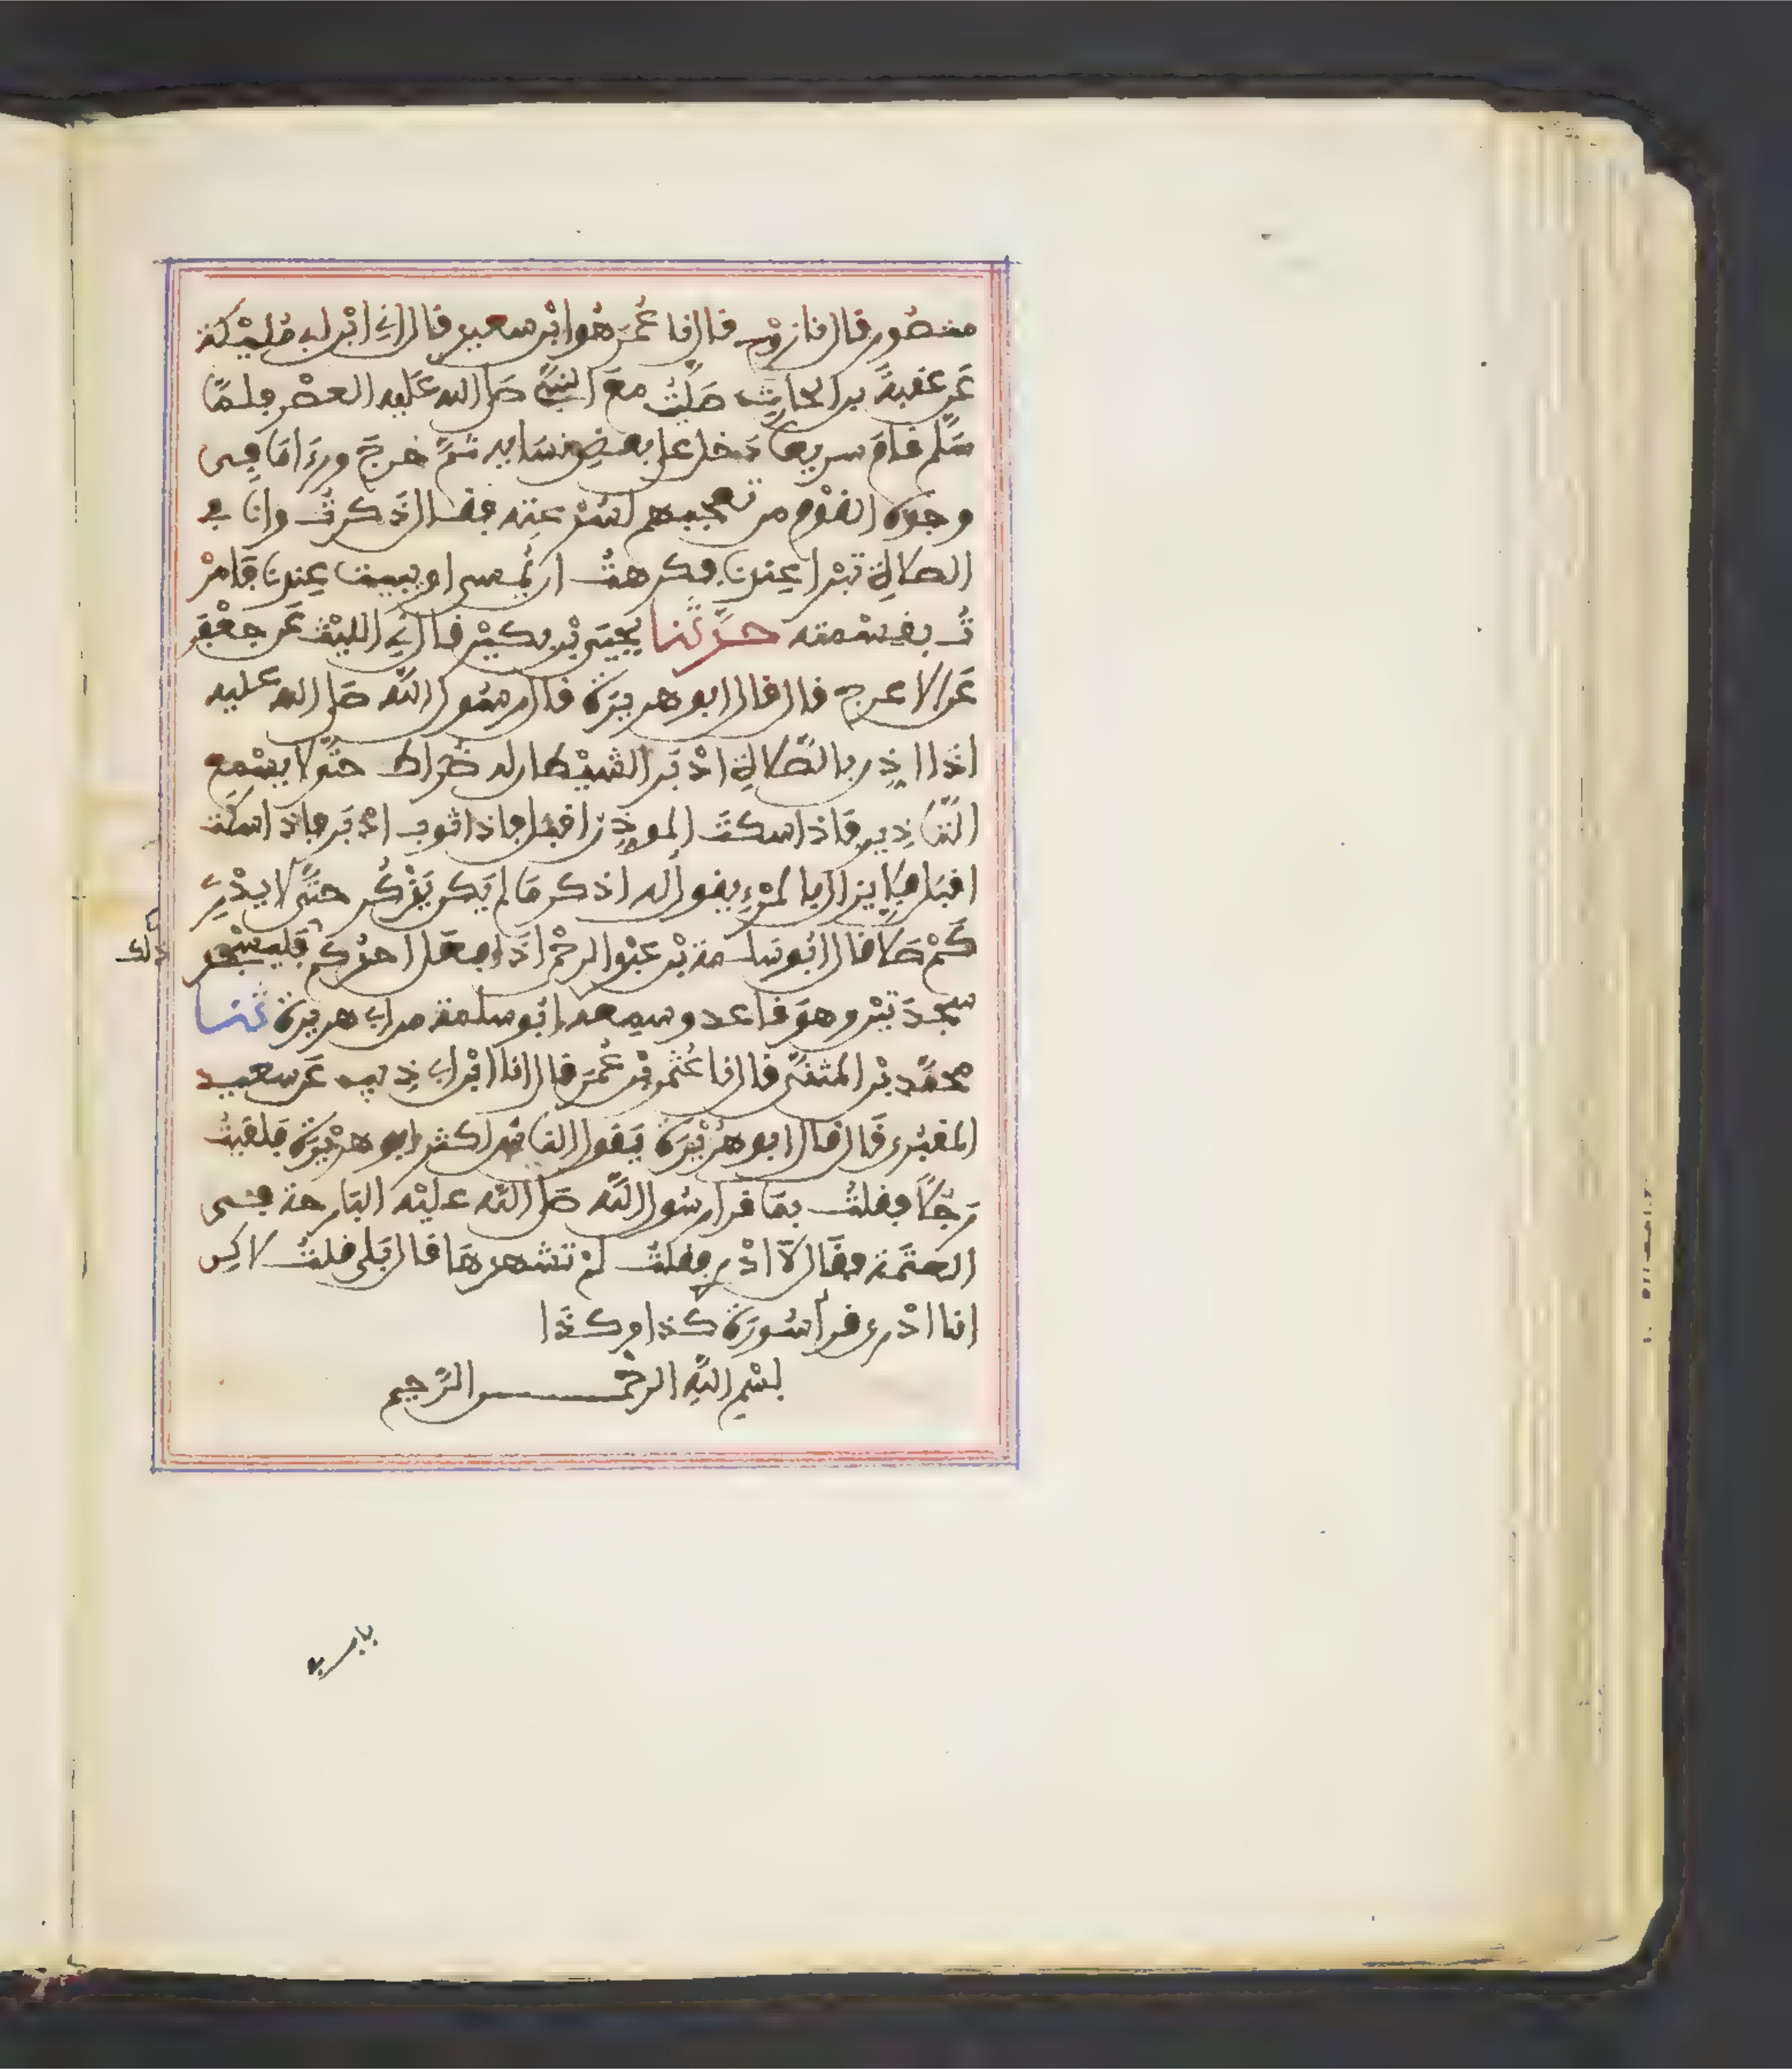 منصور قال نا روح قال نا عُمَر هُوَ ابْن سعيد قال أنِ ابْن أبي مُلَيْكة
عَن عقبةَ بن الحارث صَلَّيْتُ معَ النبيِّ صَلى الله عَليه العصْر فلمَّا
سَلَّم قامَ سريعا دَخل على بعض نسَايه ثمَّ خرجَ ورءَا مَا في
وجوه القوْم من تعجبهم لسُرْعتِه فقال ذَكرتُ وانا في
الصلاةِ تبْرا عِندنا فكرهتُ ان يُمسي او يبيت عِندنا فَامرْ
تُ بقسْمته حدَّثنا يحْيَى بْن بكيْر قال نِا الليْث عَن جعْفر
عَن الاعرج قال قال ابو هريرَة قال رسُول اللَّه صَلى الله عليه
اذَا اذِّن بالصَّلاةِ ادْبَر الشيْطان له ضُرَاط حتَّى لا يسْمع
التَّاذِين فَاذا سكتَ الموذِّن اقبل فاذا ثوب ادْبَر فاذا سكت
اقبَل فلا يزال بالمرْءِ يقول له اذكر مَا لم يَكن يَذْكُر حتَّى لا يدْرِي
كَمْ صَلا قال ابُو سَلمة بْن عبْد الرحْمن اذَا فعَل احدُكم فليسْجد
ذلك
سجدَتيْن وهوَ قاعد وسمِعه ابُو سلمة من ابي هريرة ثنا
محمَّد بْن المثنَّى قال نا عُثمن بْن عُمَر قال انا ابْن أبي ذِيب عَن سعيد
المقبُري قَال قال ابو هُرَيْرَة يَقول الناسُ اكثر ابو هرَيْرَة فلقيتُ
رَجُلاً فقلتُ بمَا قرا رسُول اللَّه صَلى اللَّه عليْه البَارحة في
العتَمة فقَال لاَ ادْري فقلتُ لمْ تشهدهَا قال بَلى قلتُ لاكِن
انا ادْري قرأ سُورَة كذا وكذَا
بسْمِ اللَّهِ الرحْمن الرَّحيم
باب